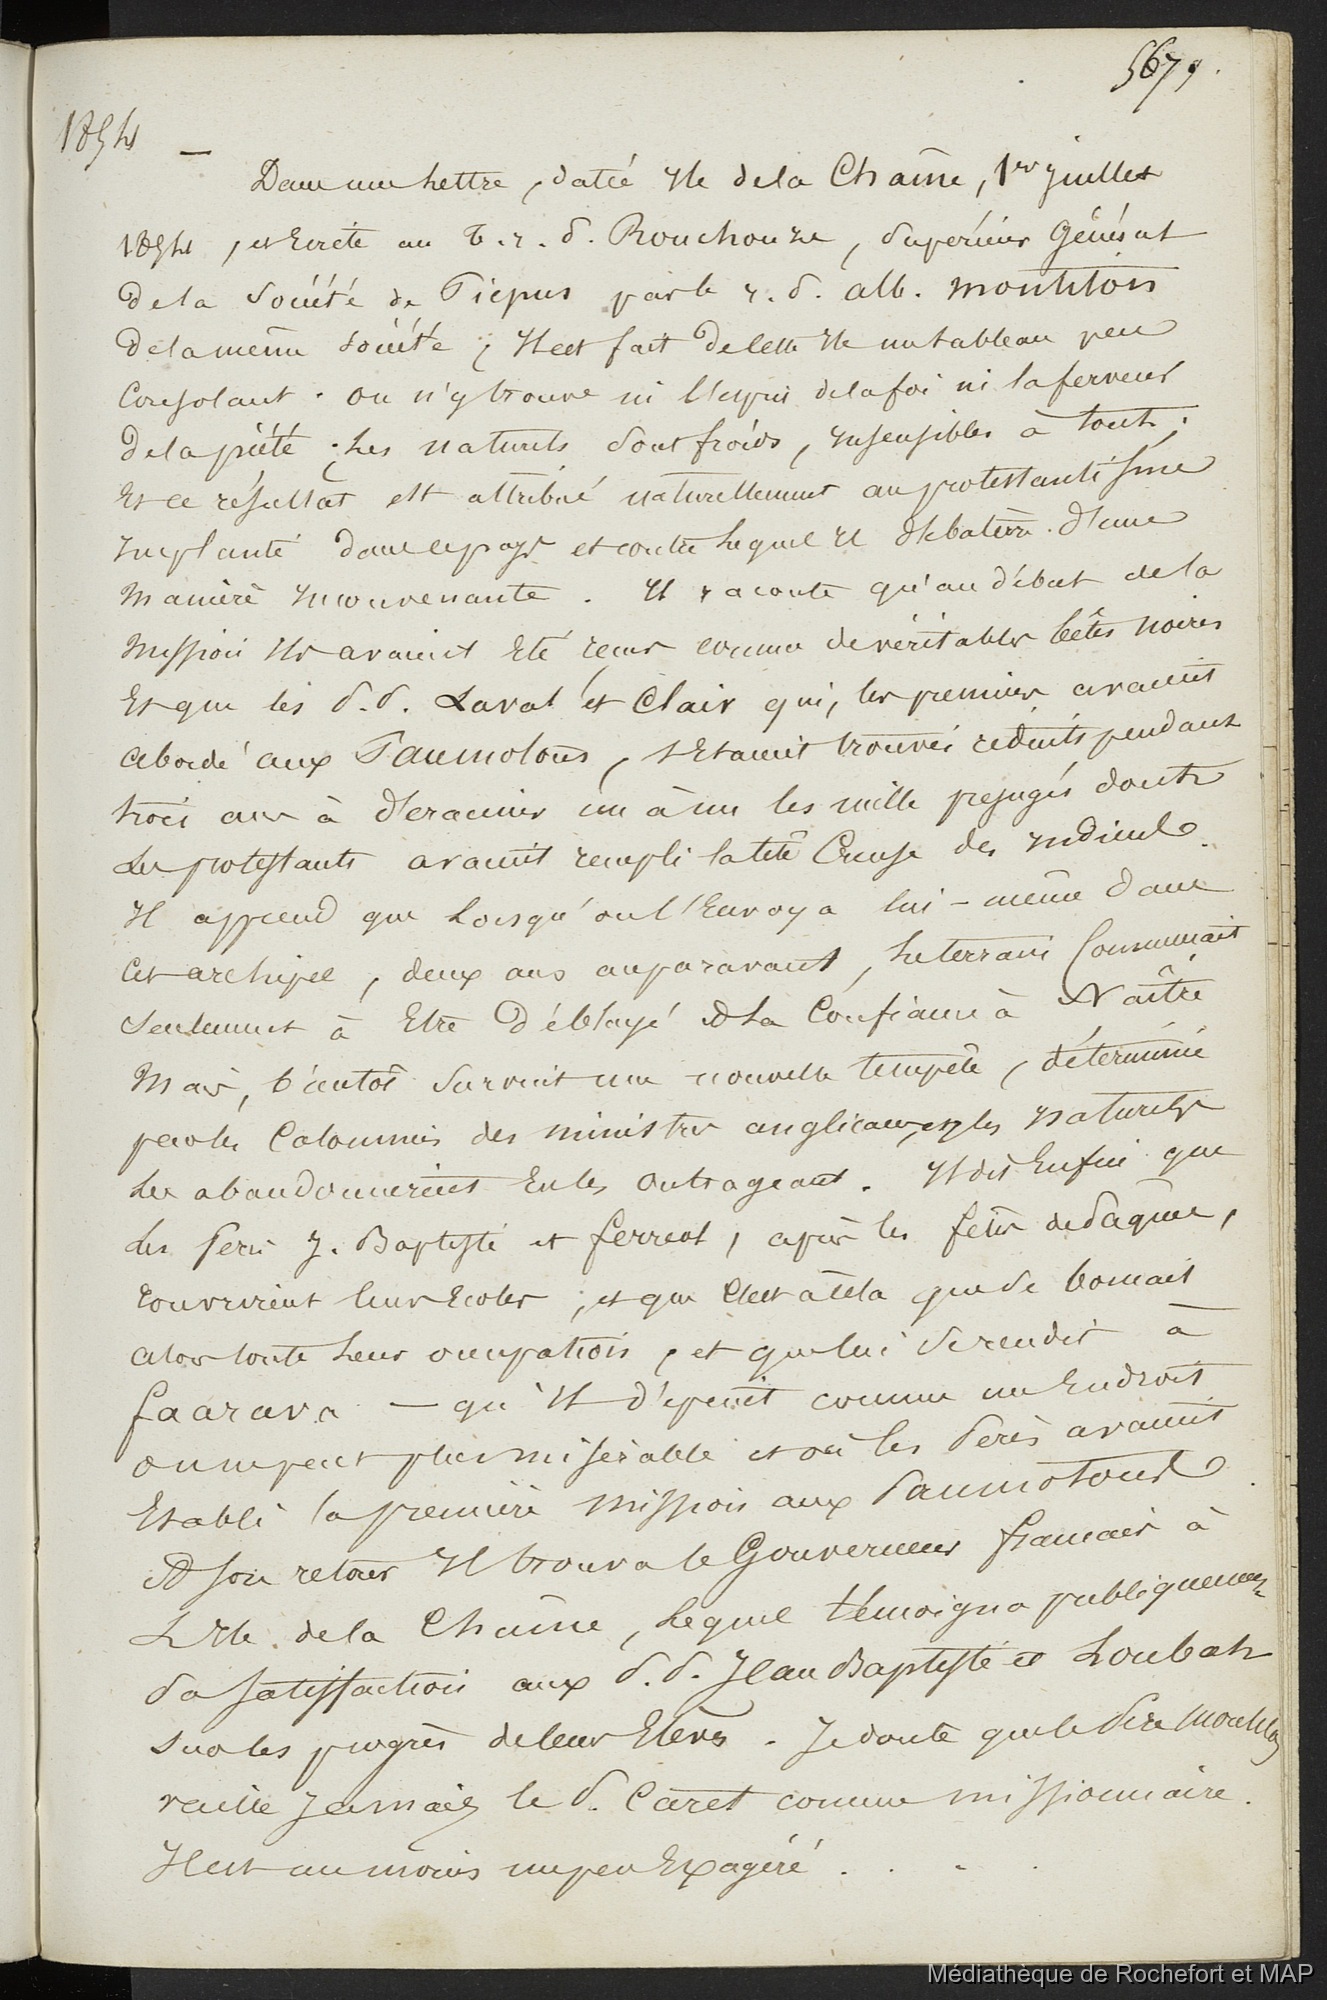 5679.
1854 —
Dans une Lettre, datée Ile de la Chaîne, 1er Juillet
1854, et Ecrite au T. r. P. Rouchouze, Supérieur Général
De la Société de Picpus par le r. P. alb. Montiton
De la même Société, Il est fait De cette Ile un tableau peu
Consolant. On n'y trouve ni l'Esprit de la foi ni la ferveur
De la piété; Les naturels sont froids, Insensibles à tout;
Et ce résultat est attribué naturellement au protestantisme
Implanté dans le pays et contre Lequel Il d'une
Manière Inconvenante. Il raconte qu'au début de la
Mission Ils avaient Eté reçus comme de véritables bêtes noires
Et que les P.P. Laval et Clair qui, les premiers avaient
abordé aux Paumotous, s'Etaient trouvés réduits pendant
trois ans à déraciner un à un les mille préjugés dont
Les protestants avaient rempli la tête Creuse des Indiens.
Il apprend que Lorsqu'on l'Envoya lui-même dans
Cet archipel, deux ans auparavant, Le terrain Commençait
Seulement à Etre Déblayé Et La Confiance à Naître
Mais, bientôt survint une nouvelle tempête, déterminée
par les Calomnies des ministres anglicans, et les naturels
Les abandonnèrent En les outrageant. Il dit Enfin que
Les Pères J. Baptiste et ferreol, après les fêtes de Pâques,
rouvrirent leurs Ecoles, et que C'est à cela que se bornait
alors toute Leur occupation, et que lui se rendit à
faarava — qu'Il dépeint comme un Endroit
on ne peut plus misérable et où les Pères avaient
Etabli la première Mission aux Paumotous
Et son retour Il trouva le Gouverneur français à
L'Ile de la Chaîne, Lequel témoigna publiquement
sa satisfaction aux P.P. Jean Baptiste et Loubat
sur les progrès de leurs Elèves. Je doute que le Père Montiton
vaille Jamais le P. Caret comme missionnaire.
Il est au moins un peu Exagéré . . - .
Médiathèque de Rochefort et MAP